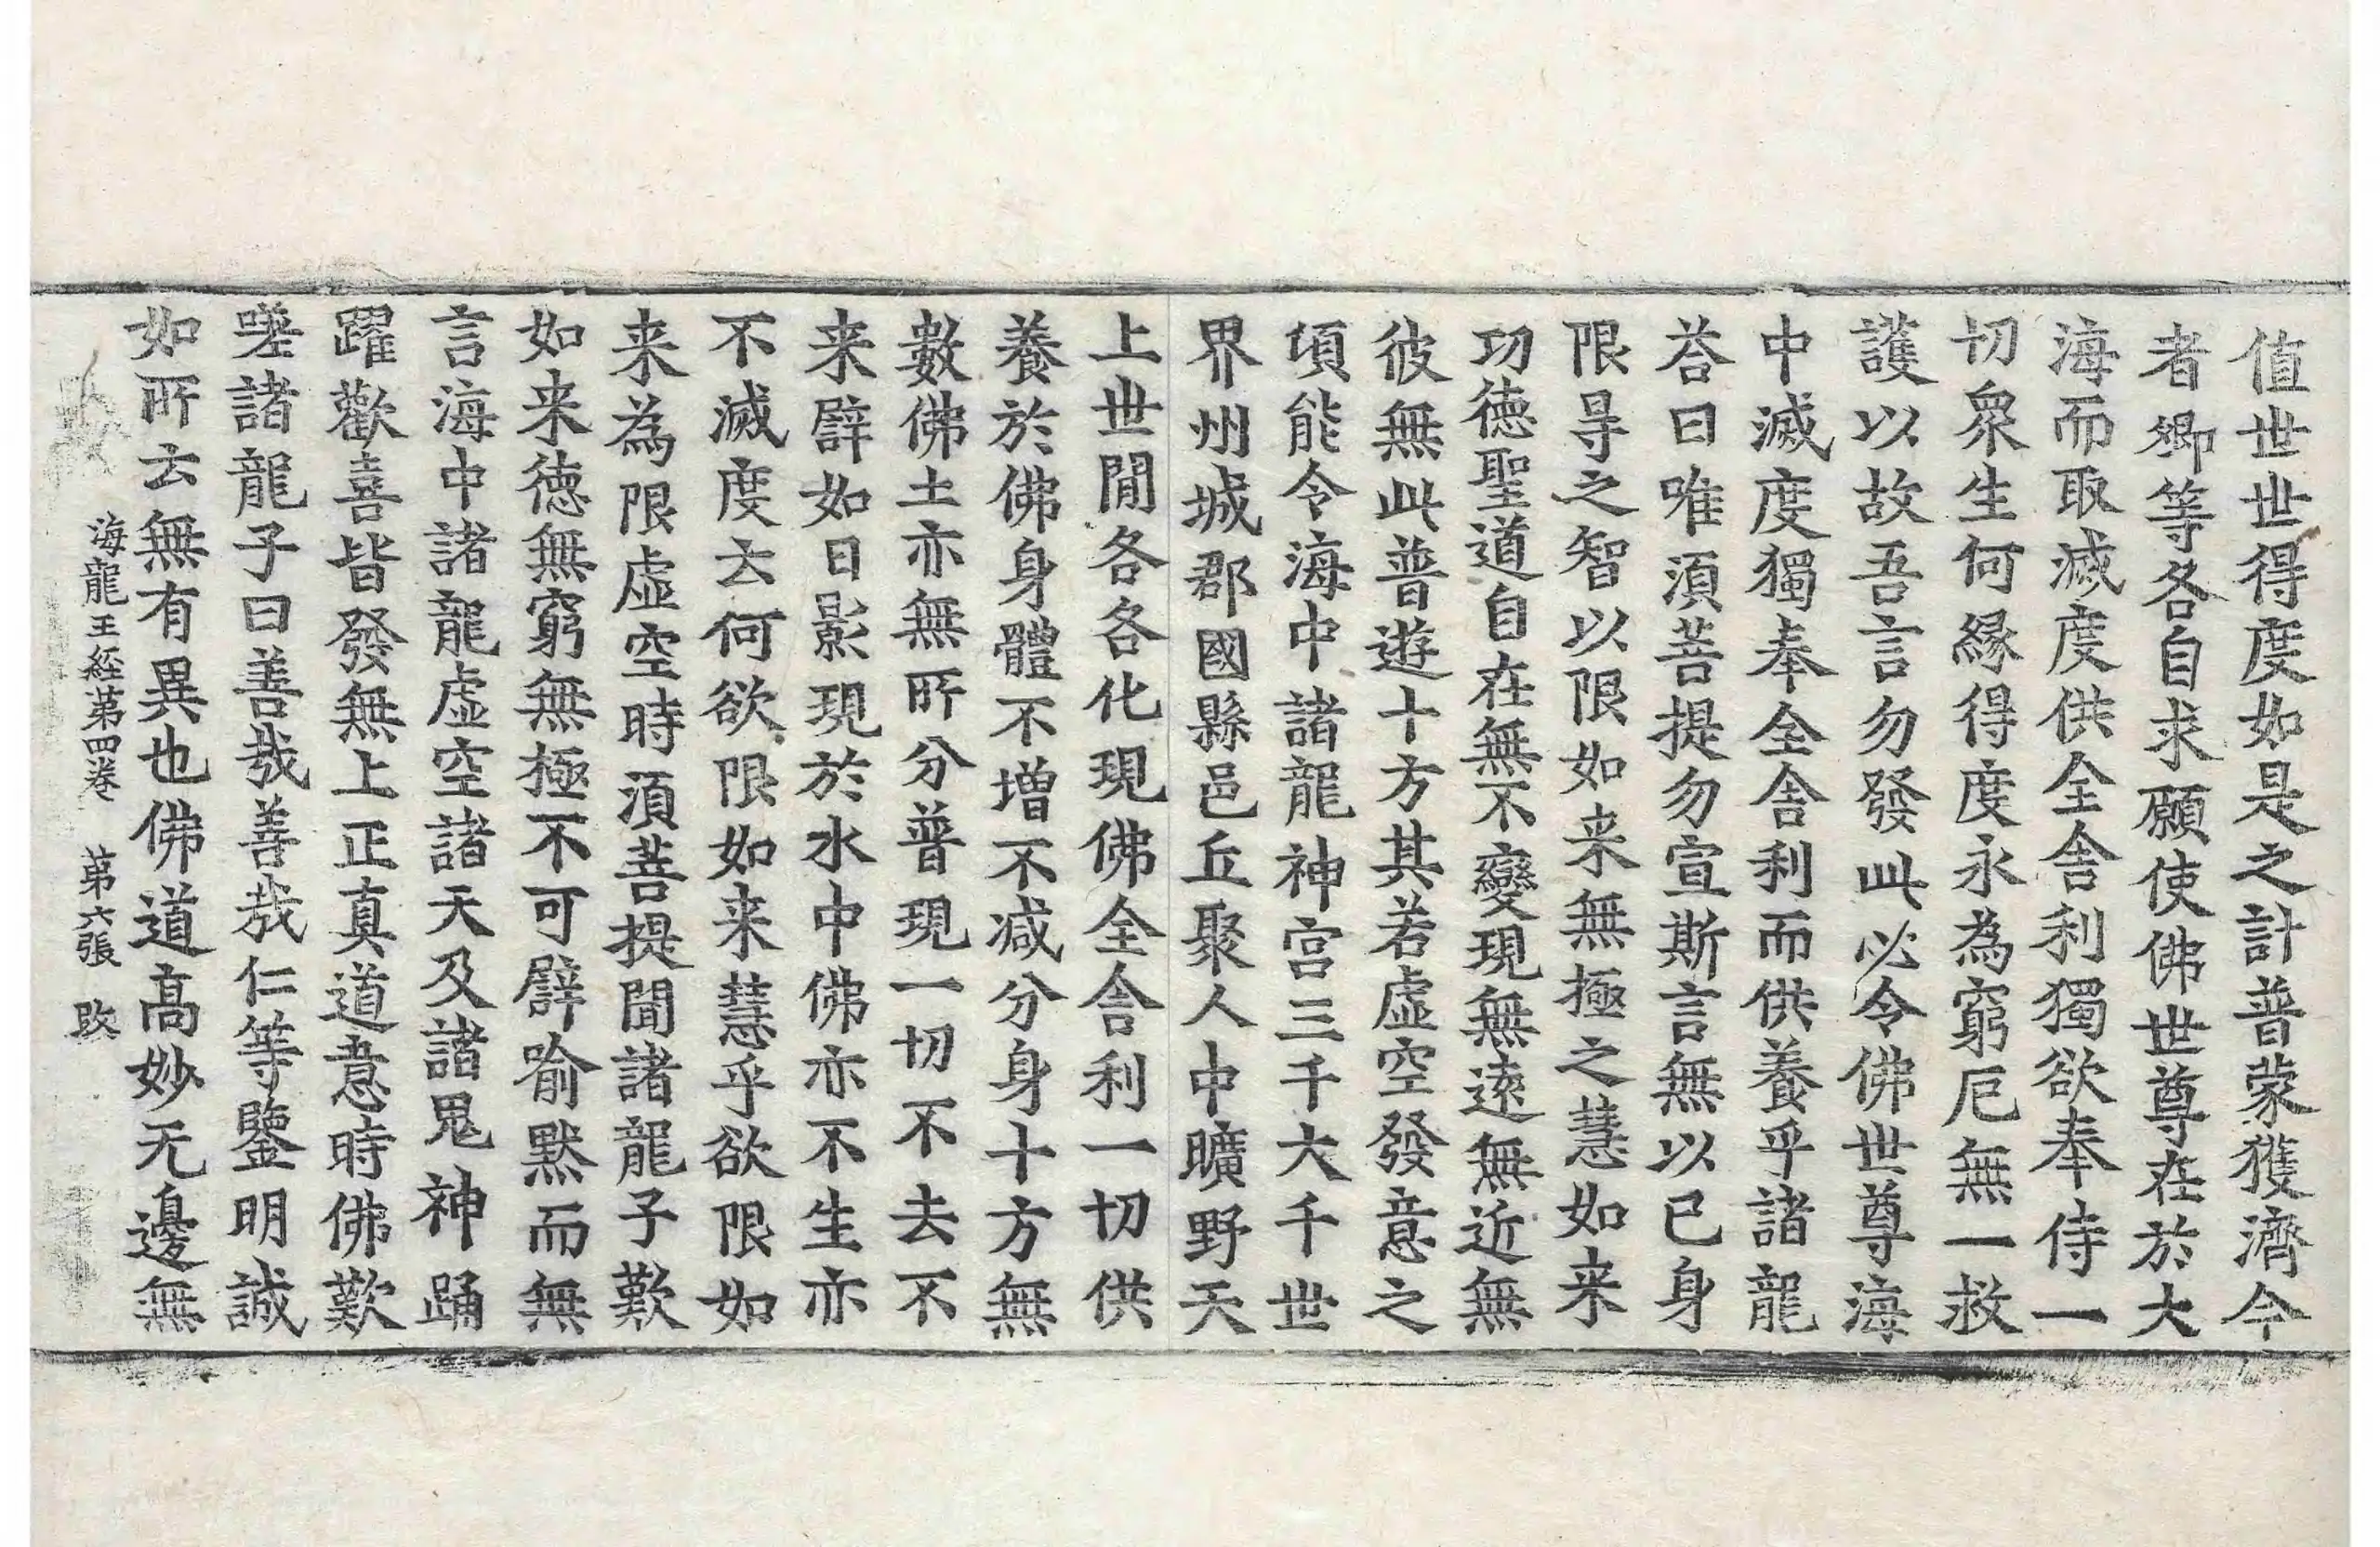 值世世得度如是之計普蒙獲濟今
者卿等各自求願使佛世尊在於大
海而取滅度供全舍利獨欲奉侍一
切衆生何緣得度永為窮厄無一救
護以故吾言勿發此必令佛世尊海
中滅度獨奉全舍利而供養乎諸龍
荅曰唯須菩提勿宣斯言無以已身
限㝵之智以限如来無極之慧如来
功德聖道自在無不變現無遠無近無
彼無此普遊十方其若虛空發意之
頃能令海中諸龍神宫三千大千世
界州城郡國縣邑丘聚人中曠野天
上世閒各各化現佛全舍利一切供
養於佛身體不增不減分身十方無
數佛土亦無所分普現一切不去不
来譬如日影現於水中佛亦不生亦
不滅度云何欲限如来慧乎欲限如
来為限虛空時須菩提聞諸龍子歎
如来德無窮無極不可譬喻黙而無
言海中諸龍虛空諸天及諸鬼神踊
躍歡喜皆發無上正真道意時佛歎
嗟諸龍子曰善哉善哉仁等鑒明誠
如所云無有異也佛道高妙无邊無
海龍王經第四卷　第六張　改